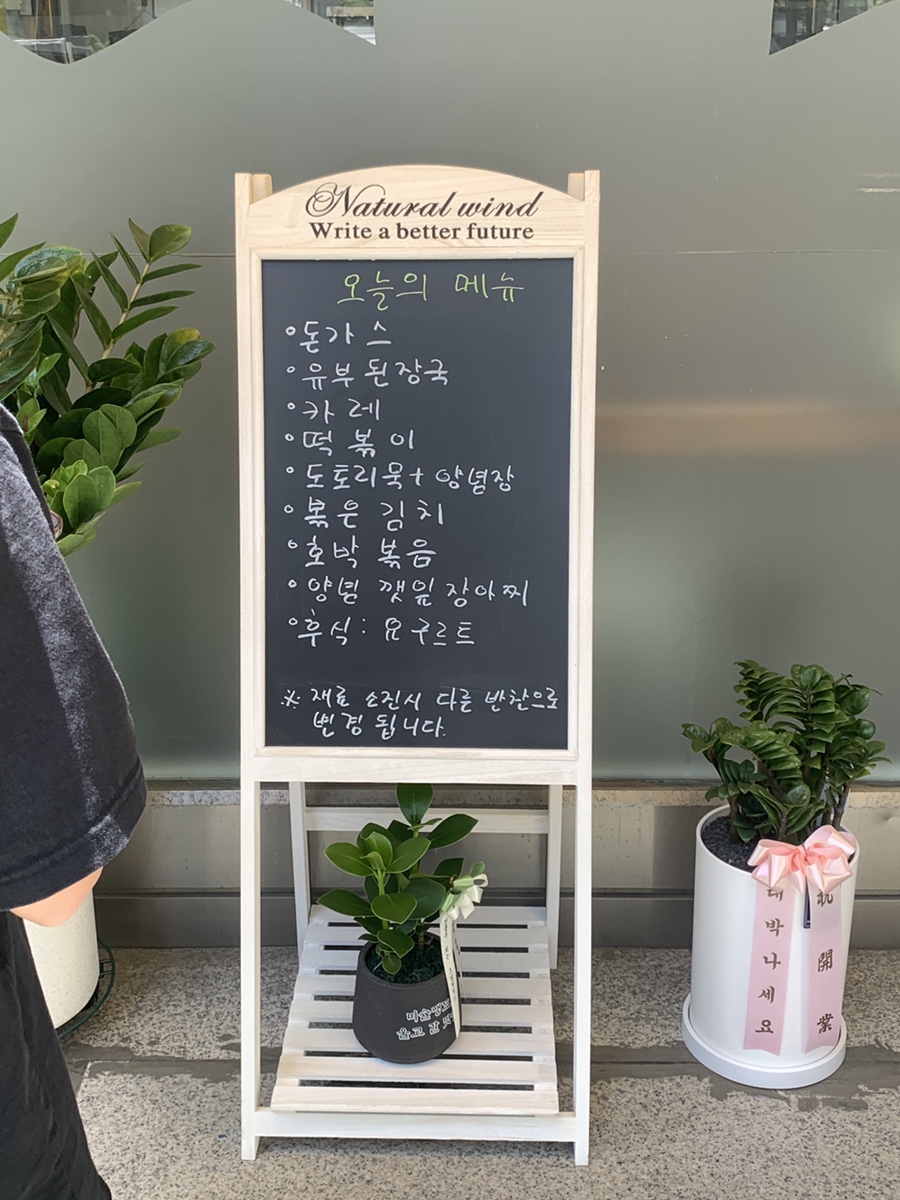 Natural wind
Write a better future
오늘의 메뉴
돈가스
유부된장국
카레
떡볶이
도토리묵+ 양념장
볶은 김치
호박 볶음
양념 깻잎 장아찌
후식: 요구르트
※ 재료 소진시 다른 반찬으로
변경 됩니다.
대박나세요
祝開業